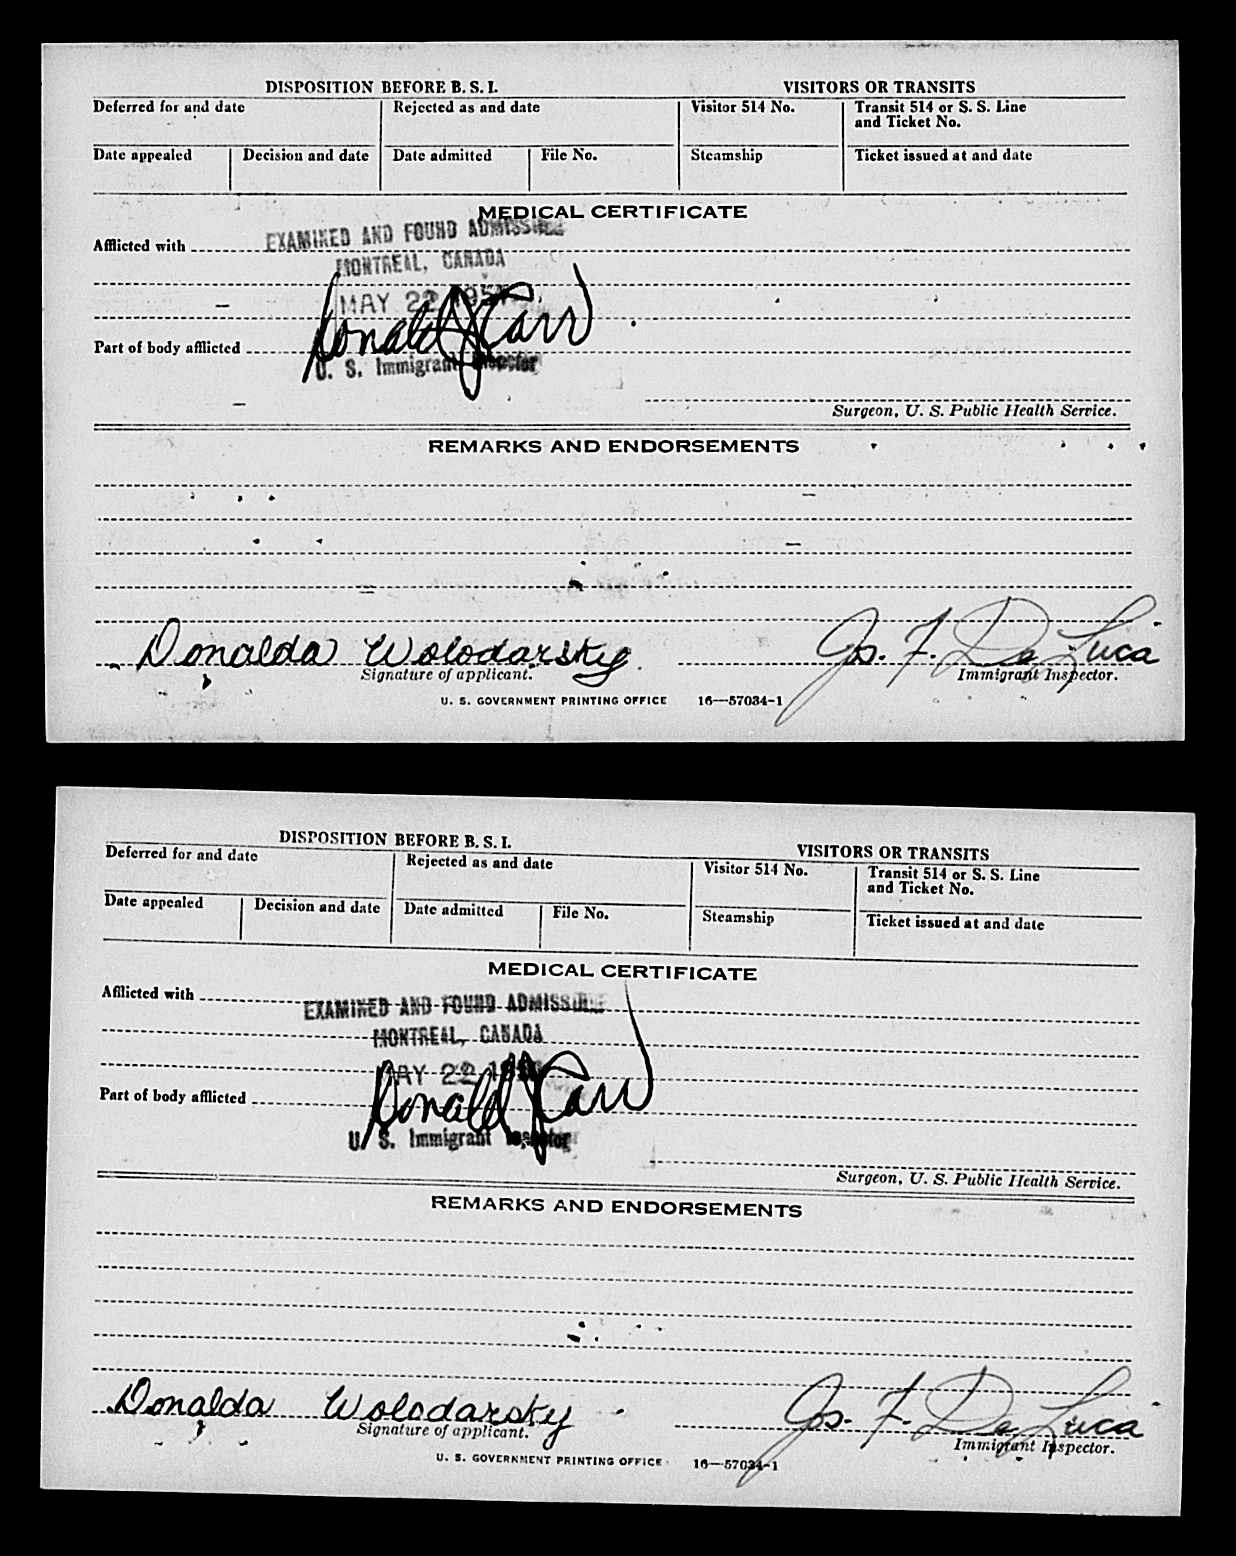 DISPOSITION BEFORE B. S. I. VISITORS OR TRANSITS
Deferred for and date Rejected as and date Visitor 514 No. Transit 514 or S. S. Line
and Ticket No.
Date appealed Decision and date Date admitted File No. Steamship Ticket issued at and date
MEDICAL CERTIFICATE
EXAMINED AND FOUND ADMISSIBLE
Afflicted with
MONTREAL, CANADA
MAY 22
Donald J Carr
Part of body afflicted
U. S. Immigrant Inspector
Surgeon, U. S. Public Health Service.
REMARKS AND ENDORSEMENTS
Donalda Wolodarsky Jos. F. De Luca
Signature of applicant. Immigrant Inspector.
U. S. GOVERNMENT PRINTING OFFICE 16—57034-1
DISPOSITION BEFORE B. S. I. VISITORS OR TRANSITS
Deferred for and date Rejected as and date Visitor 514 No. Transit 514 or S. S. Line
and Ticket No.
Date appealed Decision and date Date admitted File No. Steamship Ticket issued at and date
MEDICAL CERTIFICATE
Afflicted with
EXAMINED AND FOUND ADMISSIBLE
MONTREAL, CANADA
MAY 22
Donald J Carr
Part of body afflicted
U. S. Immigrant Inspector
Surgeon, U. S. Public Health Service.
REMARKS AND ENDORSEMENTS
Donalda Wolodarsky Jos. F. De Luca
Signature of applicant. Immigrant Inspector.
U. S. GOVERNMENT PRINTING OFFICE 16—57034-1